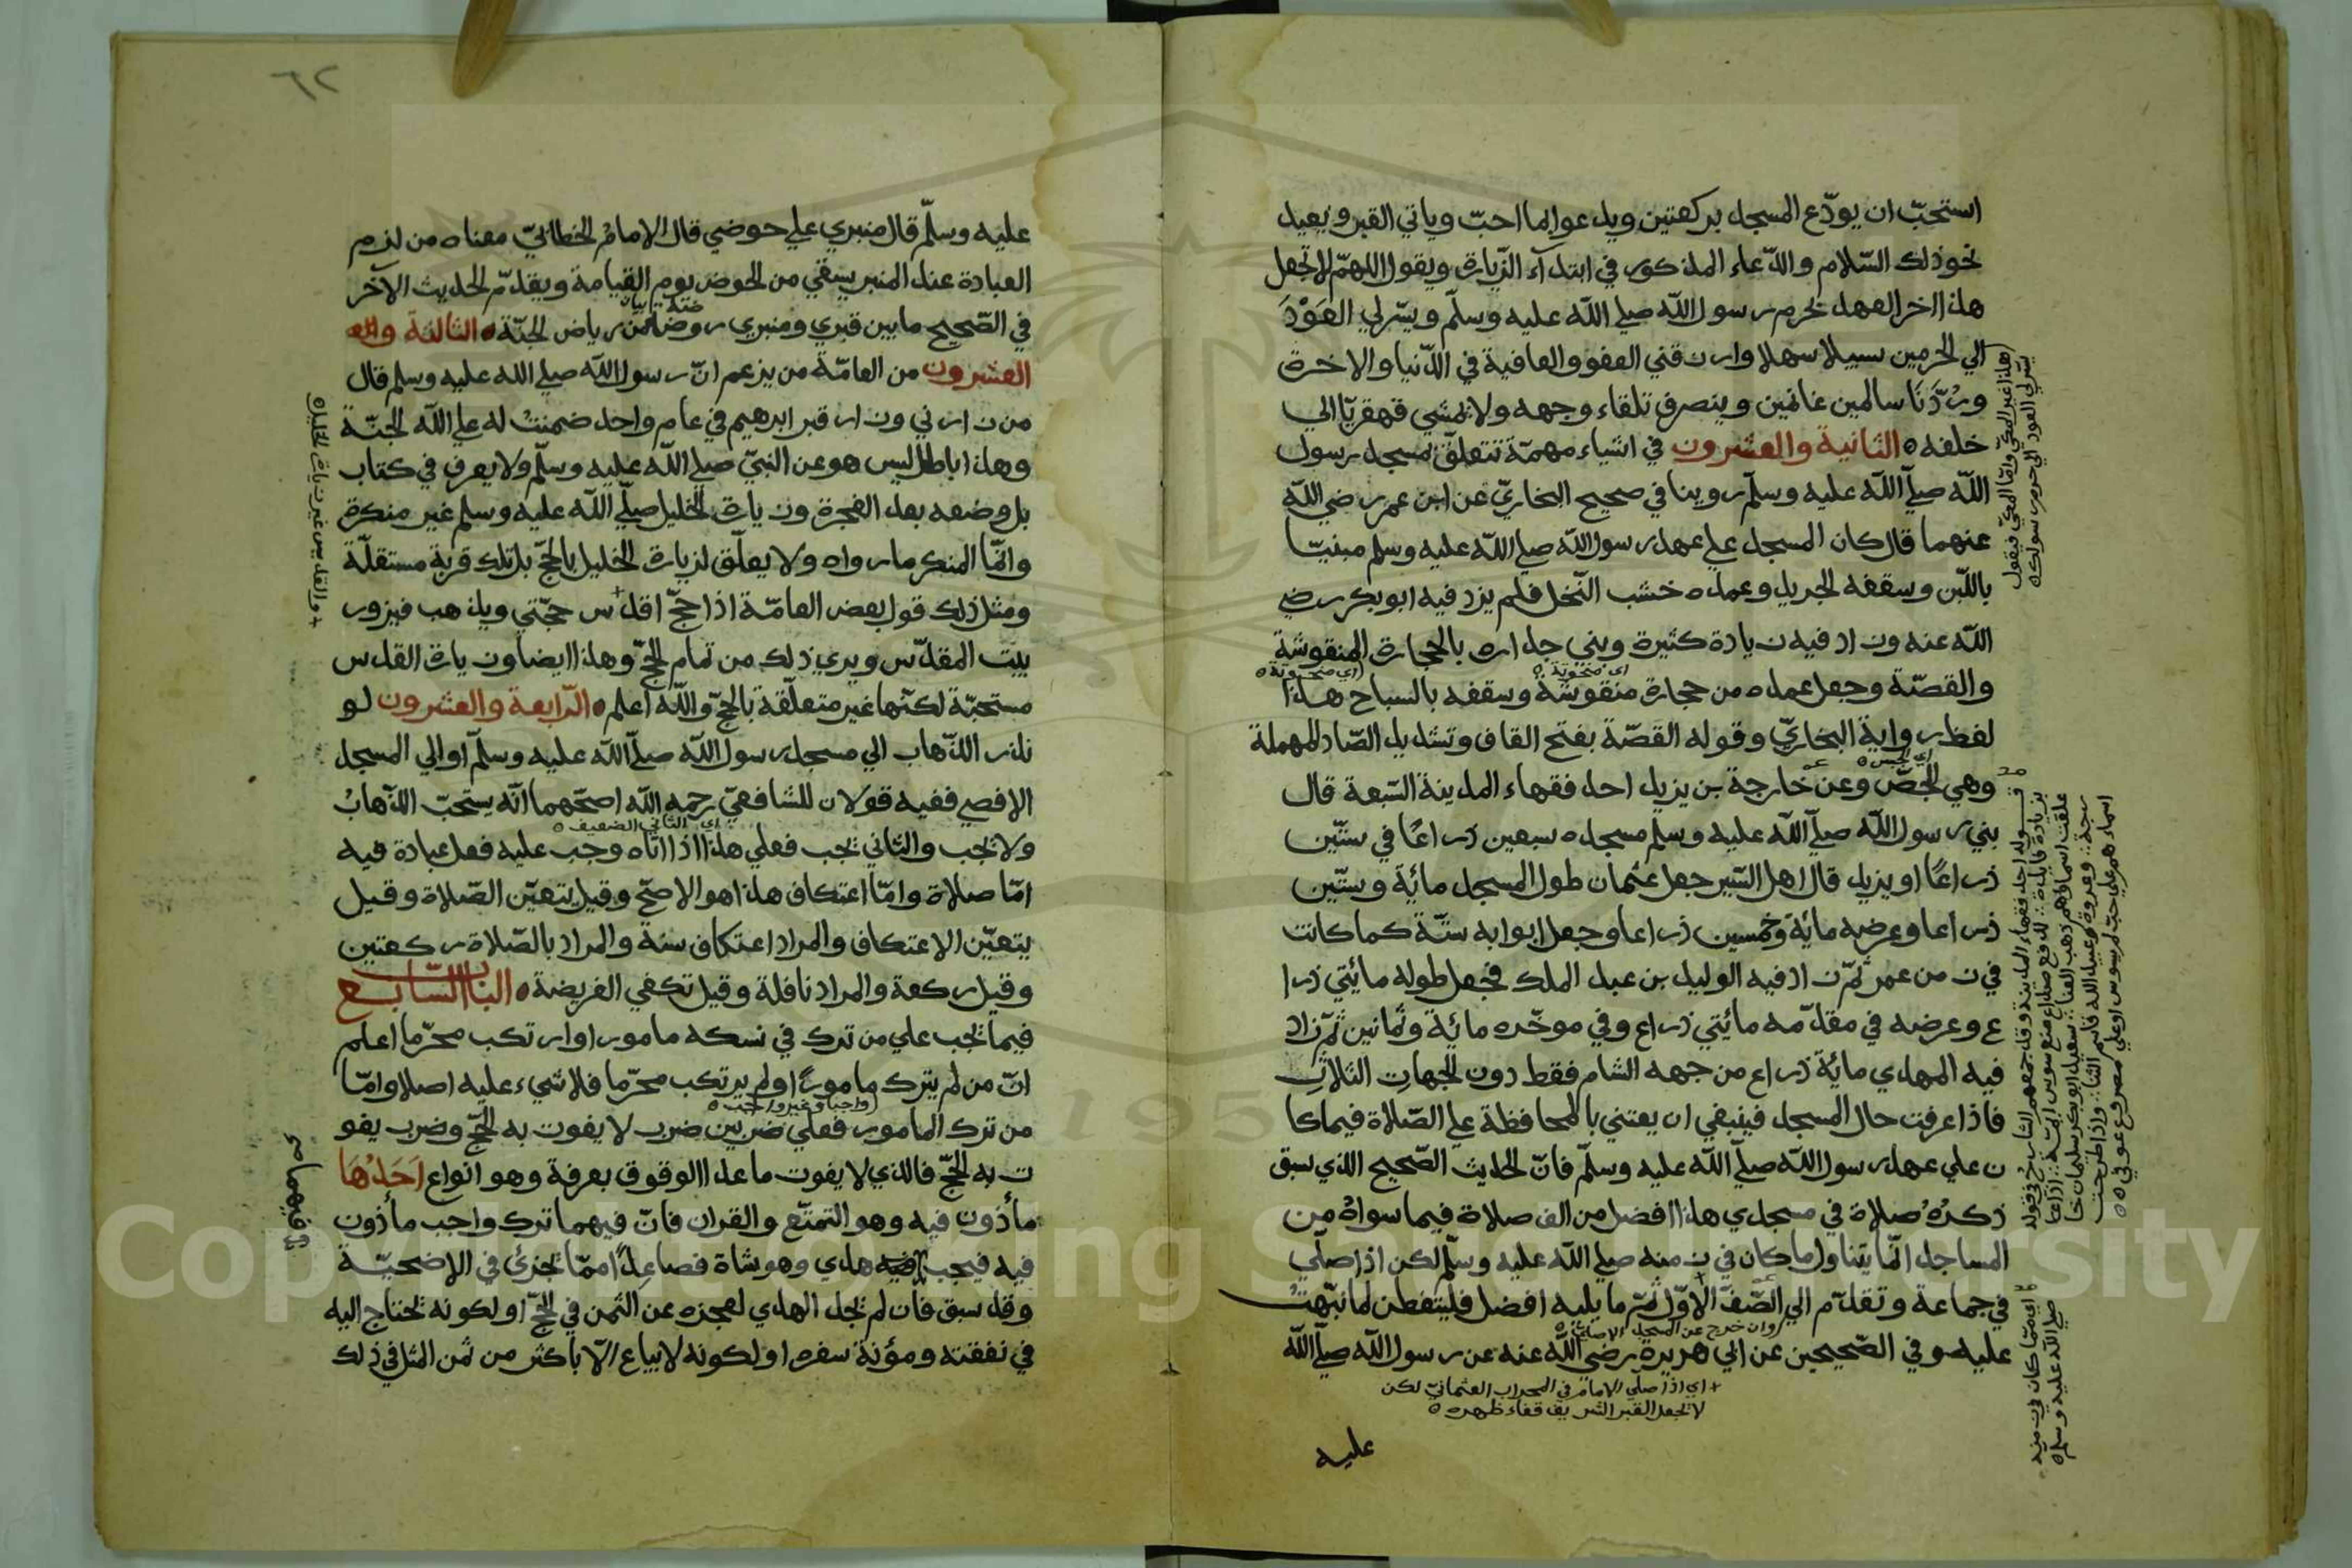 استحبّ ان يودّع المسجد بركعتين ويدعو بما احبّ وياتي القبر ويعيد
نحو ذلك السّلام والدّعاء المذكور في ابتدآء الزّيارة ويقول اللهمّ لا تجعل
هذا اخر العهد بحرم رسول الله صلي الله عليه وسلّم ويسّر لي العَوْدَ
الي الحرمين سبيلا سهلا وارزقني العفو والعافية في الدّنيا والاخرة
ورُدَّنَا سالمين غانمين وينصرف تلقاء وجهه ولا يمشي قهقريّا الي
خلفه ه الثانية والعشرون في اشياء مهمّة تتعلّق بمسجد رسول
الله صلّي الله عليه وسلّم روينا في صحيح البخاريّ عن ابن عمر رضي الله
عنهما قال كان المسجد علي عهد رسول الله صلي الله عليه وسلم مبنيّا
باللّبن وسقفه الجريد وعمده خشب النّخل فلم يزد فيه ابوبكر رضي
الله عنه وزاد فيه زيادة كثيرة وبني جداره بالحجارة المنقوشة
والقصّة وجعل عمده من حجارة منقوشة وسقفه بالساج هذا
لفظ رواية البخاريّ وقوله القصّة بفتح القاف وتشديد الصّاد المهملة
وهي الجصّ وعن خارجة بن يزيد احد فقهاء المدينة السّبعة قال
بني رسول الله صلّي الله عليه وسلم مسجده سبعين ذراعًا في ستّين
ذراعًا او يزيد قال اهل السّير جعل عثمان طول المسجد مائة وستّين
ذراعا وعرضه مائة وخمسين ذراعا وجعل ابوابه ستّة كما كانت
في زمن عمر ثمّ زاد فيه الوليد بن عبد الملك فجعل طوله مائتي ذرا
ع وعرضه في مقدّمه مائتي ذراع وفي موخّره مائة وثمانين ثمّ زاد
فيه المهدي مائة ذراع من جهه الشام فقط دون الجهات الثلاث
فاذا عرفت حال المسجد فينبغي ان يعتني بالمحافظة علي الصّلاة فيما كا
ن علي عهد رسول الله صلّي الله عليه وسلّم فانّ الحديث الصّحيح الذي سبق
ذكرُهُ صلاة في مسجدي هذا افضل من الف صلاة فيما سواهُ من
المساجد انّما يتناول ما كان في زمنه صلي الله عليه وسلّم لكن اذا صلّي
في جماعة وتقدّم الي الصّفّ الاوّل ثمّ ما يليه افضل فليتفطن لما نبّهتُ
عليه وفي الصّحيحين عن ابي هريرة رضي الله عنه عن رسول الله صلّي الله
+ اي اذا صلّي الامام في المحراب العثمانيّ لكن
لا تجعل القبر الشريف قفاء ظهره ه
عليه
(هذا غير المكيّ وامّا المكيّ فيقول
يسّر لي العود الي حرم رسولك ه
اي ممّا كان في زمنه
صلي الله عليه وسلم ه
٦٢
عليه وسلّم قال منبري علي حوضي قال الامامُ الخطابيّ معناه من لزم
العبادة عند المنبر يسقي من الحوض يوم القيامة ويقدّم الحديث الآخر
في الصّحيح ما بين قبري ومنبري روضة من رياض الجنّة ه الثالثة وال
العشرون من العامّة من يزعم انّ رسول الله صلي الله عليه وسلم قال
من زارني وزار قبر ابرهيم في عام واحد ضمنتُ له علي الله الجنّة
وهذا باطل ليس هو عن النبيّ صلي الله عليه وسلّم ولا يعرف في كتاب
بل وضعه بعد الفجرة وزيارة الخليل صلّي الله عليه وسلم غير منكرة
وانّما المنكر ما رواه ولا يعلّق لزيارة الخليل بالحجّ بل تلك قربة مستقلّة
ومثل ذلك قول بعض العامّة اذا حجّ اقدس حجّتي ويذهب فيزور
بيت المقدّس ويري ذلك من تمام الحجّ وهذا ايضا وزيارة القدس
مستحبّة لكنّها غير متعلّقة بالحجّ والله اعلم ه الرّابعة والعشرون لو
نذر الذّهاب الي مسجد رسول الله صلّي الله عليه وسلّم او الي المسجد
الاقصي ففيه قولان للشافعيّ رحمه الله اصحّهما انّه يستحبّ الذّهابُ
ولا تجب والثاني تجب فعلي هذا اذا اتاه وجب عليه فعل عبادة فيه
امّا صلاة وامّا اعتكاف هذا هو الاصحّ وقيل يتعيّن الصّلاة وقيل
يتعيّن الاعتكاف والمراد اعتكاف سنة والمراد بالصّلاة ركعتين
وقيل ركعة والمراد نافلة وقيل تكفي الفريضة ه الباب السّابع
فيما تجب علي من ترك في نسكه مامورا او ارتكب محرّما اعلم
انّ من لم يترك مامورًا او لم يرتكب محرّما فلا شيء عليه اصلا وامّا
من ترك المامور فعلي ضربين ضرب لا يفوت به الحجّ وضرب يفو
ت به الحجّ فالذي لا يفوت ما عدا الوقوف بعرفة وهو انواع اَحَدُهَا
مأذون فيه وهو التمتّع والقران فانّ فيهما ترك واجب مأذون
فيه فيجب فيه هدي وهو شاة فصاعدًا ممّا تجزئ في الاضحيّة
وقد سبق فان لم تجد الهدي لعجزه عن الثمن في الحجّ او لكونه تحتاج اليه
في نفقته ومؤنة سفره او لكونه لا يباع الّا باكثر من ثمن المثل في ذلك
(واجبا وغير واجب ه
اي الثاني الضعيف ه
+ والقدس غير زيارة الخليل ه
فيهما